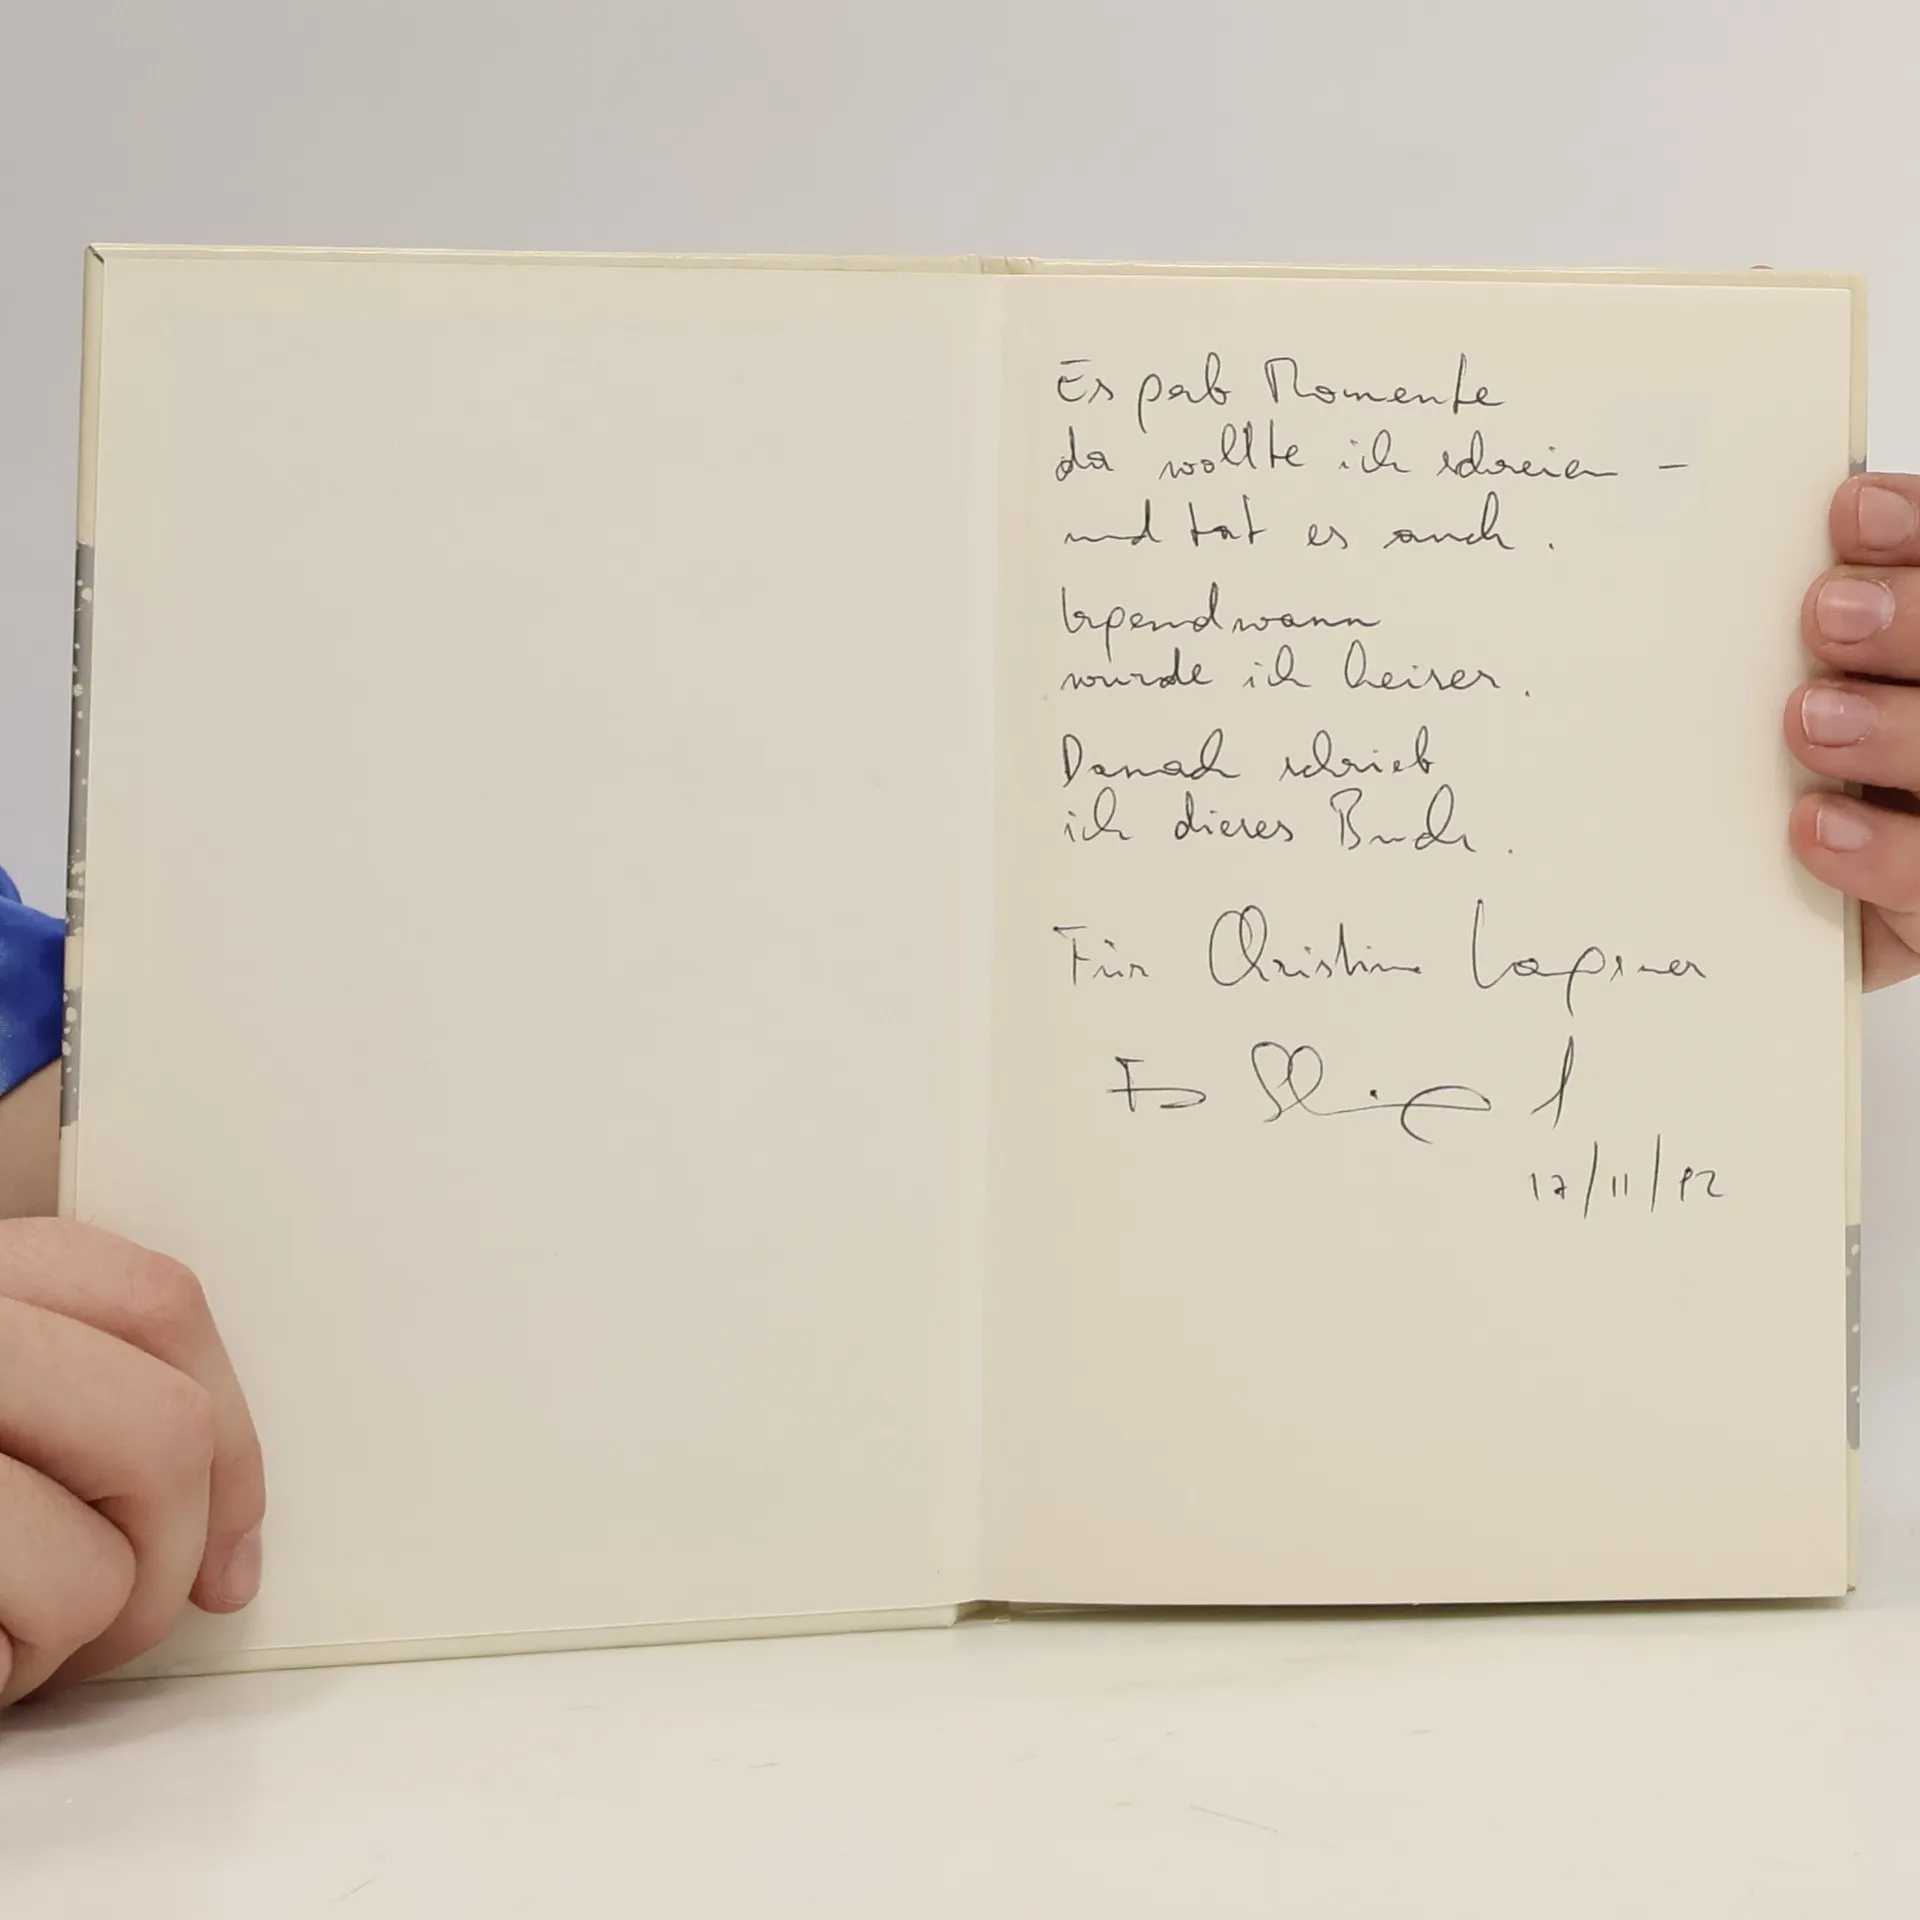 Es gab Momente
da wollte ich schreien –
und tat es auch.
Irgendwann
wurde ich heiser.
Danach schrieb
ich dieses Buch.
Für Christine
17/11/92